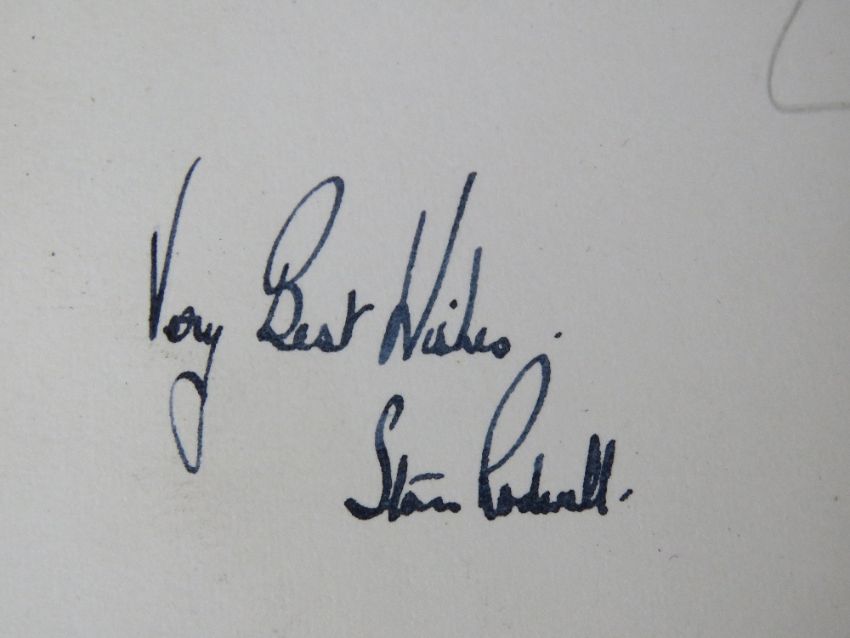 Very Best Wishes.
Stan Rodwell.